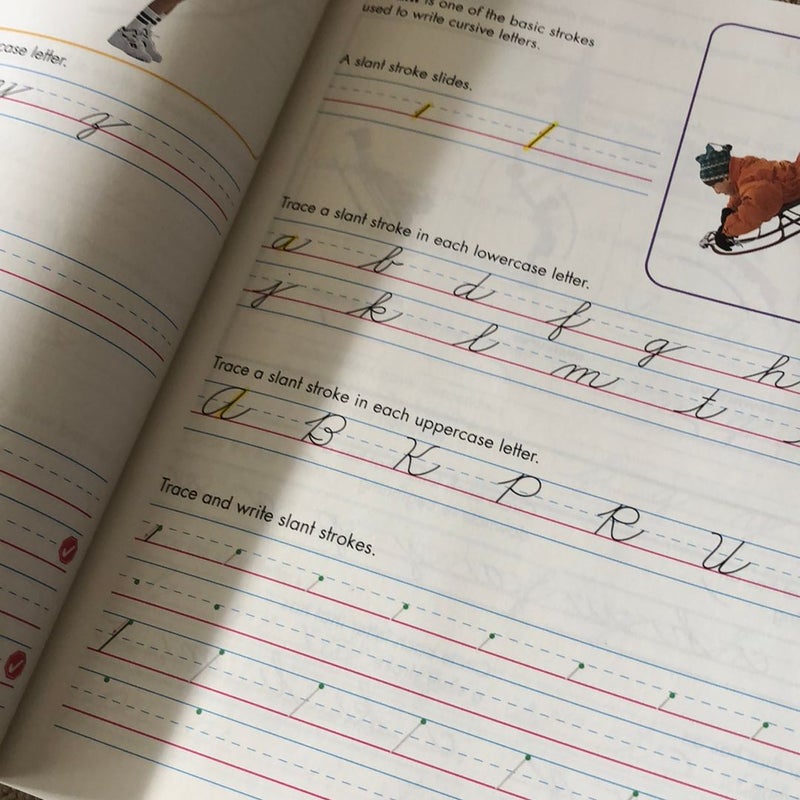 case letter.
y z
is one of the basic strokes
used to write cursive letters.
A slant stroke slides.
Trace a slant stroke in each lowercase letter.
a b d f g h
j k l m t
Trace a slant stroke in each uppercase letter.
A B K P R U
Trace and write slant strokes.